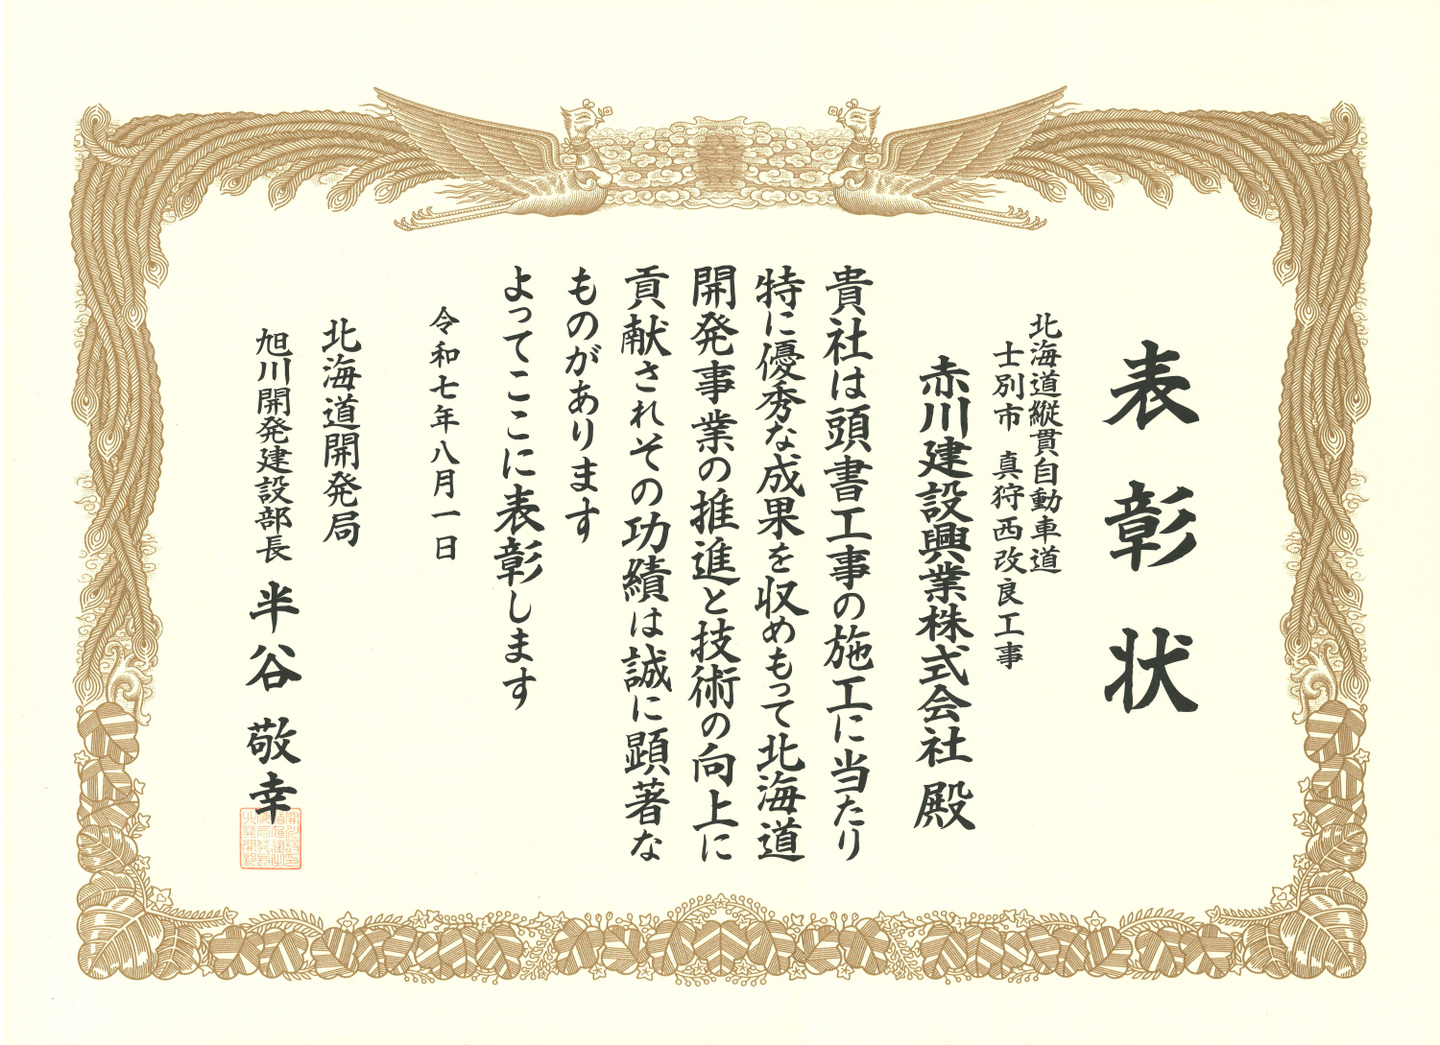 表彰状
北海道縦貫自動車道
士別市 真狩西改良工事
赤川建設興業株式会社 殿
貴社は頭書工事の施工に当たり
特に優秀な成果を収めもって北海道
開発事業の推進と技術の向上に
貢献されその功績は誠に顕著な
ものがあります
よってここに表彰します
令和七年八月一日
北海道開発局
旭川開発建設部長 半谷 敬幸